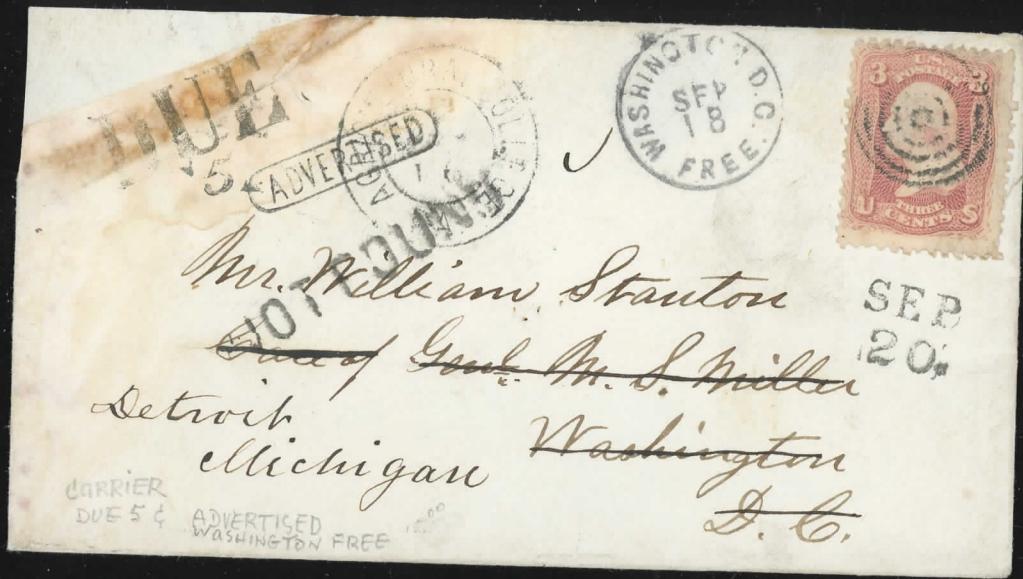 DUE
5
ADVERTISED
WASHINGTON D.C.
SEP
18
FREE.
3
U.S.
3
U
THREE
CENTS
S
NOT FOUND
SEP
20
Mr. William Stanton
Care of Genl. M. S. Miller
Washington
D. C.
Detroit
Michigan
CARRIER
DUE 5 ¢
ADVERTISED
WASHINGTON FREE